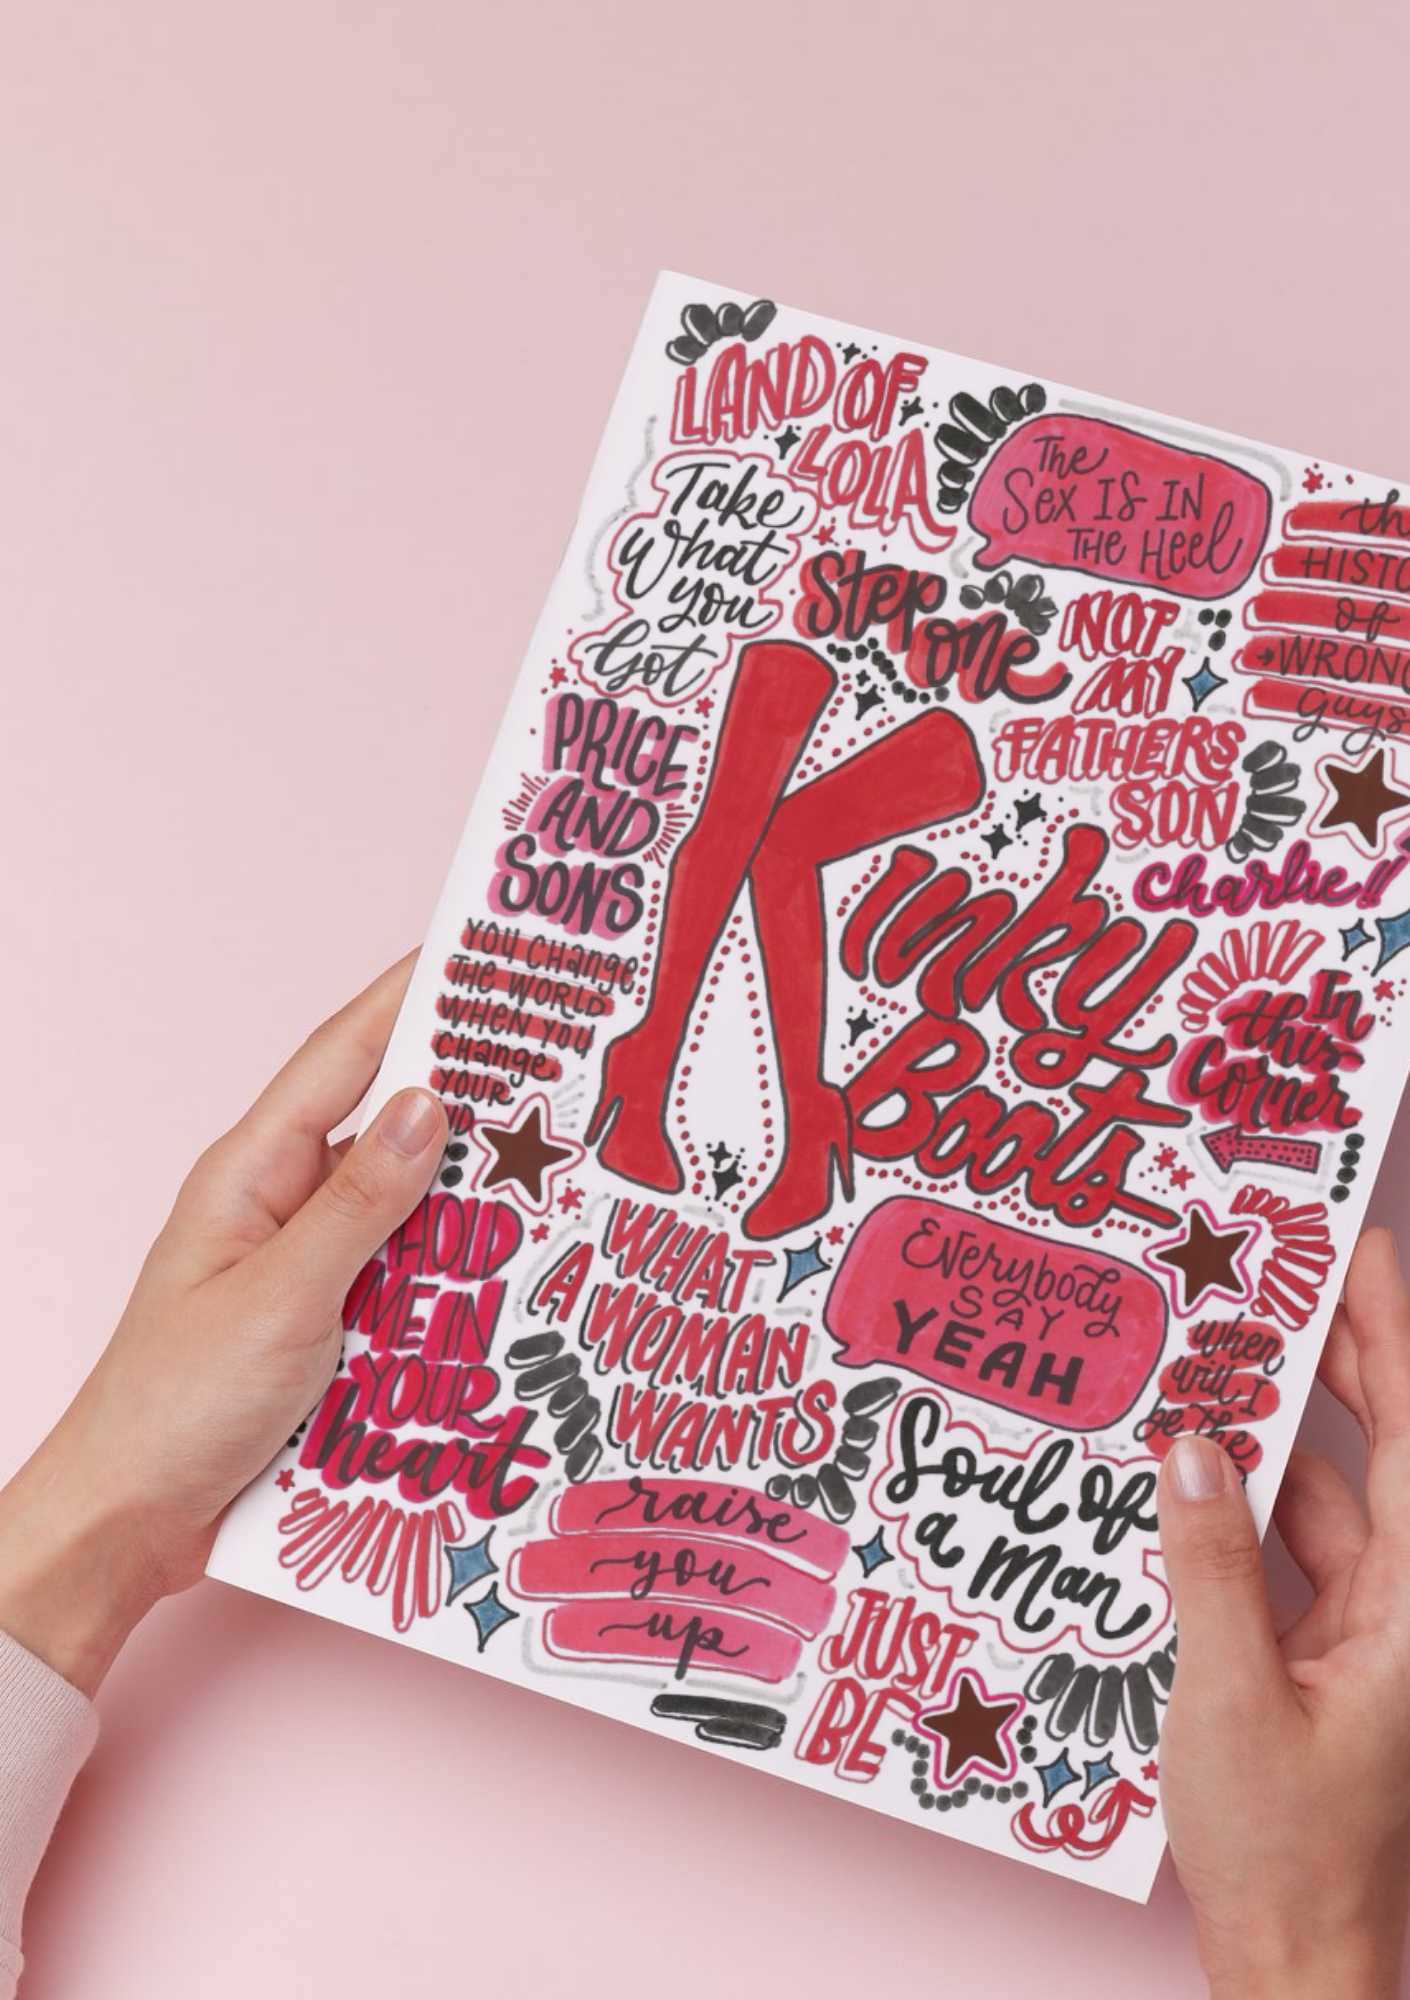 LAND OF
LOLA
The
Sex IS IN
THE Heel
Take
What
you
Got
Step
one
NOT
MY
FATHERS
SON
th
HISTO
of
WRONG
guys
charlie!!
PRICE
AND
SONS
Kinky
Boots
YOU Change
THE WORLD
WHEN YOU
change
YOUR
In
this
Corner
HOLD
ME IN
YOUR
heart
WHAT
A WOMAN
WANTS
Everybody
SAY
YEAH
when
will I
be the
Soul of
a Man
raise
you
up
JUST
BE